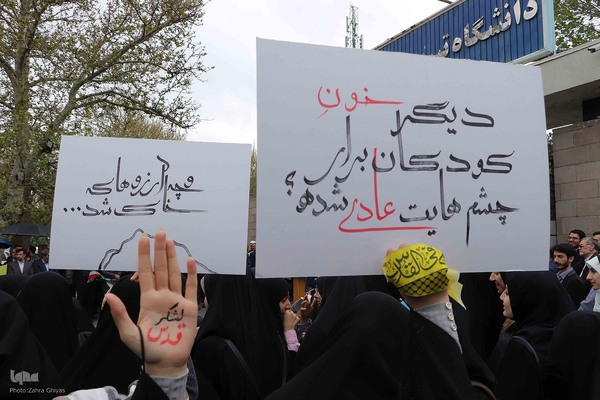 دانشگاه
دیگر خونِ
کودکان برای
چشم هایت عادی شده؟
و چه آرزوهای
خاک شد...
القدس
لشکر
قدس
iqna
Photo:Zahra Ghiyas